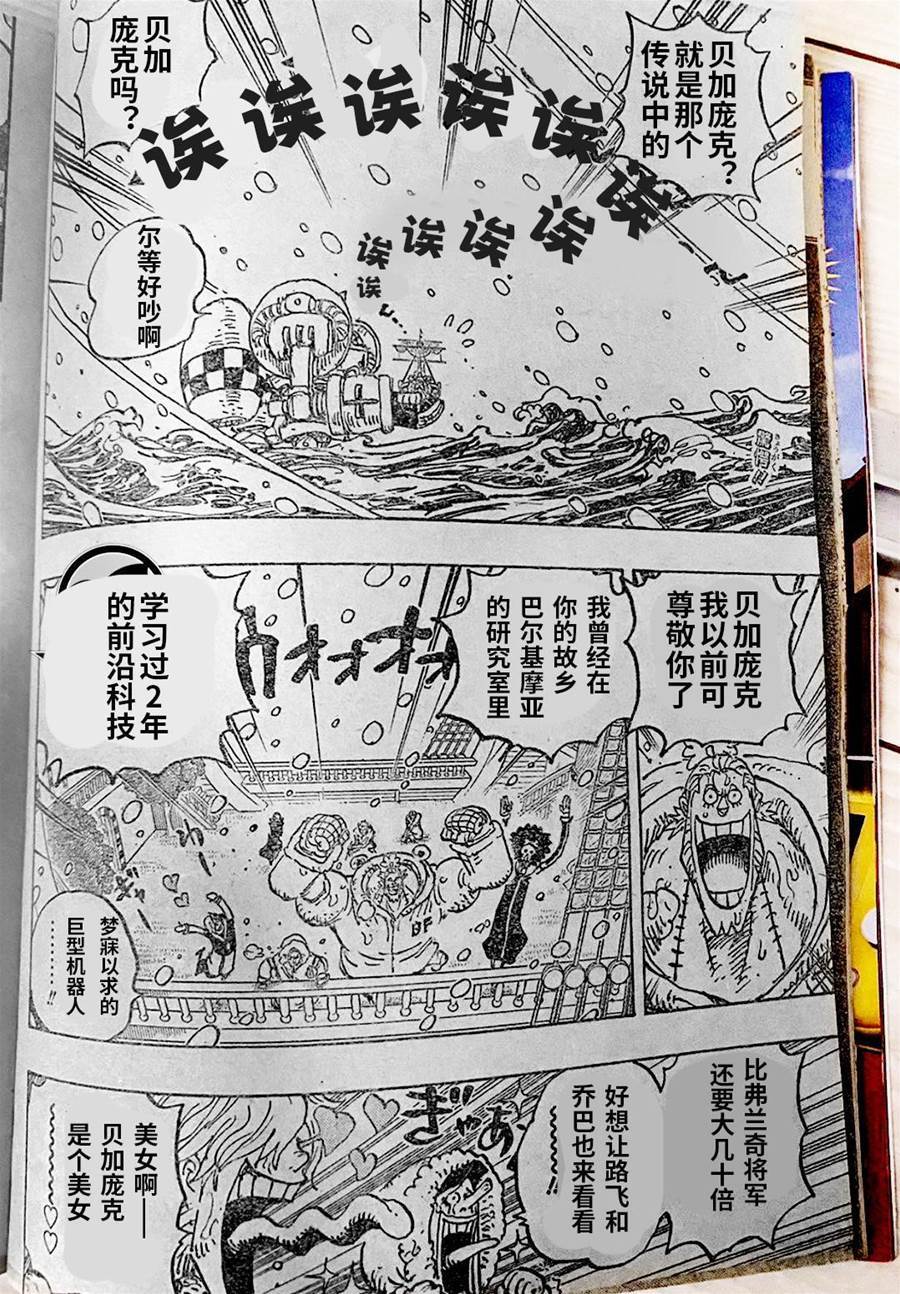 贝加庞克？
就是那个
传说中的
诶诶诶诶诶诶
诶诶诶诶诶诶
贝加
庞克吗？
尔等好吵啊
贝加庞克
我以前可
尊敬你了
我曾经在
你的故乡
巴尔基摩亚
的研究室里
ウオオオオ
学习过2年
的前沿科技
BF
梦寐以求的
巨型机器人
………!!
比弗兰奇将军
还要大几十倍
好想让路飞和
乔巴也来看看
~~~~!!
ぎゅあ
美女啊——
贝加庞克
是个美女
~~~~♡♡